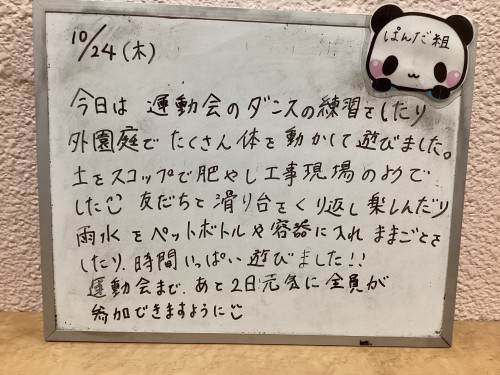 10/24(木)
ぱんだ組
今日は 運動会のダンスの練習をしたり
外園庭で たくさん体を動かして遊びました。
土をスコップで肥やし工事現場のようで
した☺ 友だちと滑り台をくり返し楽しんだり
雨水をペットボトルや容器に入れ ままごとを
したり、時間いっぱい遊びました!!
運動会まで、あと2日元気に全員が
参加できますように☺